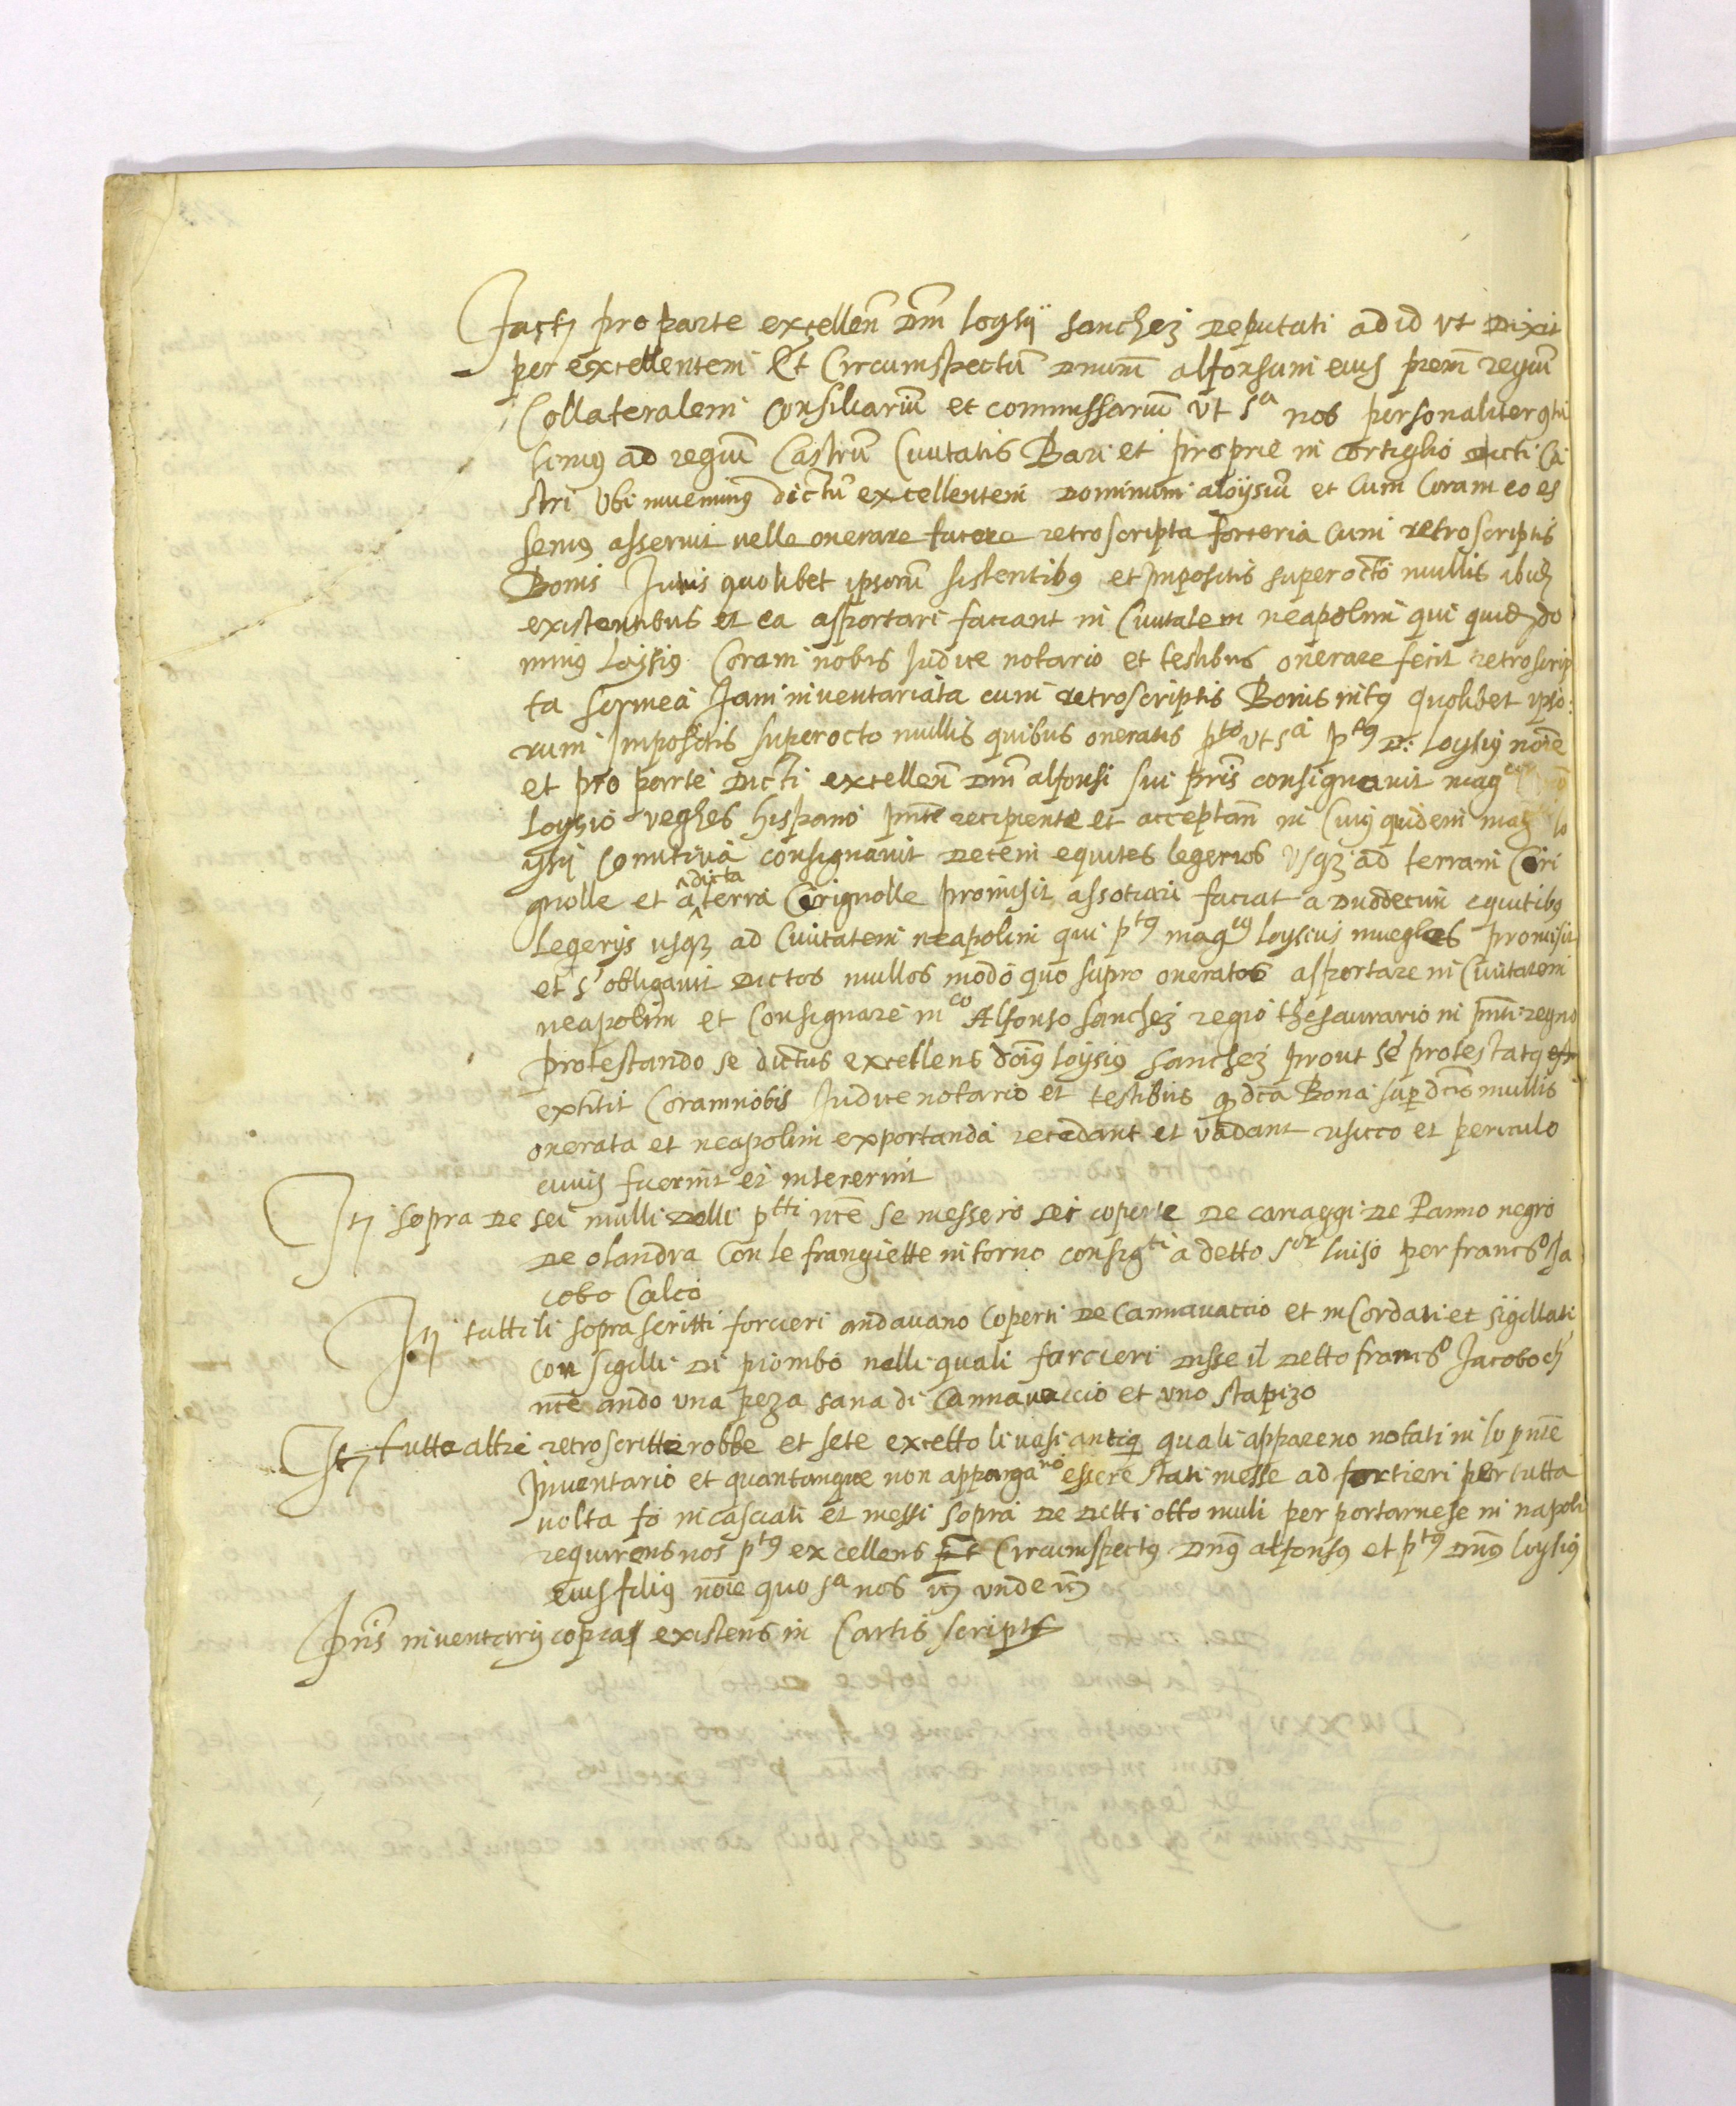 fact[?] pro parte excellen̄ Dm̄ loysij sanchez Deputati ad id vt Dixit
per excellentem Et Circumspectū Dnum̄ alfonsum eius prem̄ regiū
Collateralem Consiliariū et commissariū vt sᵃ nos personaliter
ad regiū Castrū Ciuitatis Bari et proprie in Cortiglio dicti Ca
stri Vbi inuenimꝰ dictū excellentem Dominum aloysiū et Cum Coram eo es
semꝰ asseruit uelle onerare facere retroscripta forceria Cum retroscriptis
Bonis Intus quolibet ipsorū sistentibꝰ et Impositis super octo mullis ibid
existentibus et ea asportari faciant in Ciuitatem neapolim qui quid do
minꝰ Loysiꝰ Coram nobis Iudice notario et testibus onerare fecit retroscrip
ta Iam inventariata cum retroscriptis Bonis intꝰ quolibet ipso:
rum Impositis super octo mullis quibus oneratis pᵗᵒ vt sᵃ pᵗꝰ D: Loysiꝰ noīe
et pro parte Dicti excellen̄ Dm̄ alfonsi sui pris̄ consignauit mag
loysio veghes hispano pn̄te recipiente et acceptan̄ in Cuiꝰ quidem mag lo
ysij Comitiua consignauit Decem equites legerios vsqꝫ ad terram Ciri
gnolle et a ^dicta terra Cirignolle promisit assotiari faciat a Duodecim equitibꝰ
Legerijs usqꝫ ad Ciuitatem neapolim qui pᵗꝰ magᶜꝰ loysius mueghes promisit
et s' obligauit Dictos mullos modo quo supro oneratos asportare in Ciuitatem
neapolim et Consignare mᶜᵒ Alfonso sanchez regio thesaurario in pn̄ti regno
protestando se dictus excellens doīꝰ loysiꝰ sanchez prout se protestatꝰ
extitit Coram nobis Iudice notario et testibus ꝙ dc̄a Bona sup dc̄is mullis
onerata et neapolim exportanda recedant et vadant risicco et periculo
cuius fuerint et intererint
Itꝫ sopra De sei mulli Delli pᵗᵗⁱ nce se messero sei coperte De cariaggi De Panno negro
De olandra Con le frangiette intorno consigᵗⁱ a detto sᵒʳ luiso per francᵒ Ia
cobo Calco
Itꝫ tutti li soprascritti forcieri andauano Coperti De Cannauaccio et in Cordati et sigillati
Con sigilli Di piombo nelli quali farcieri Disse il Detto francsᵒ Iacobo ch
nce ando vna peza sana di Cannauaccio et vno stapizo
Itꝫ tutte altre retroscritte robbe et sete excetto li uasi antiqꝫ quali appareno notati in lo pn̄te
Inuentario et quantunque non apparganᵒ essere stati messe ad fortieri per tutta
uolta fo incasciati et messi sopra De Detti otto muli per portarnese in napoli
requirens nos pᵗꝰ excellens et Circumspectꝰ Dn̄ꝰ alfonsꝰ et pᵗꝰ Dn̄ꝰ loysiꝰ
eius filiꝰ noīe quo sᵃ nos itꝫ vnde itꝫ
pn̄s inventarij copia existens in Cartis scriptis